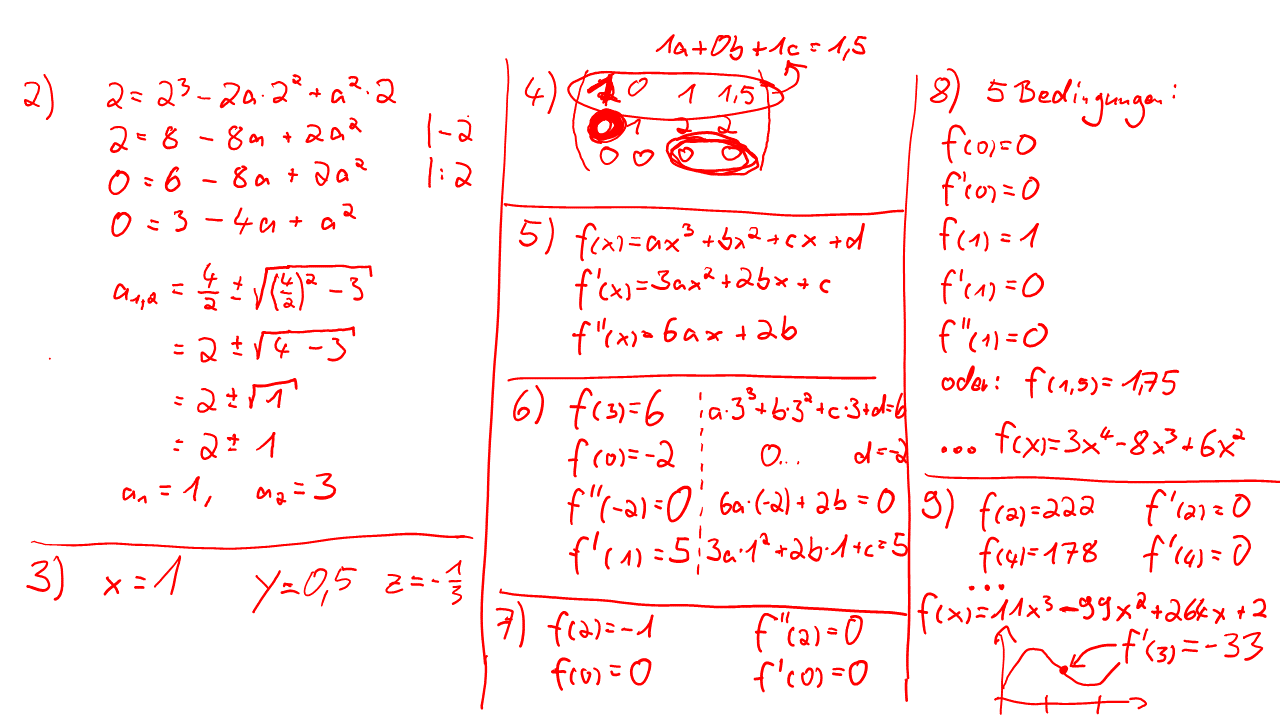 2) 2=2³-2a·2²+a²·2
2=8-8a+2a² |-2
0=6-8a+2a² |:2
0=3-4a+a²
a₁,₂ = 4/2 ± √((4/2)²-3)
= 2 ± √(4-3)
= 2 ± √1
= 2 ± 1
a₁=1, a₂=3
3) x=1 y=0,5 z=-1/3
1a+0b+1c=1,5
4) 1 0 1 1,5
0 1 2 2
0 0 0 0
5) f(x)=ax³+bx²+cx+d
f'(x)=3ax²+2bx+c
f''(x)=6ax+2b
6) f(3)=6 a·3³+b·3²+c·3+d=6
f(0)=-2 0... d=-2
f''(-2)=0 6a·(-2)+2b=0
f'(1)=5 3a·1²+2b·1+c=5
7) f(2)=-1 f''(2)=0
f(0)=0 f'(0)=0
8) 5 Bedingungen:
f(0)=0
f'(0)=0
f(1)=1
f'(1)=0
f''(1)=0
oder: f(1,5)=1,75
... f(x)=3x⁴-8x³+6x²
9) f(2)=222 f'(2)=0
f(4)=178 f'(4)=0
...
f(x)=11x³-99x²+264x+2
f'(3)=-33